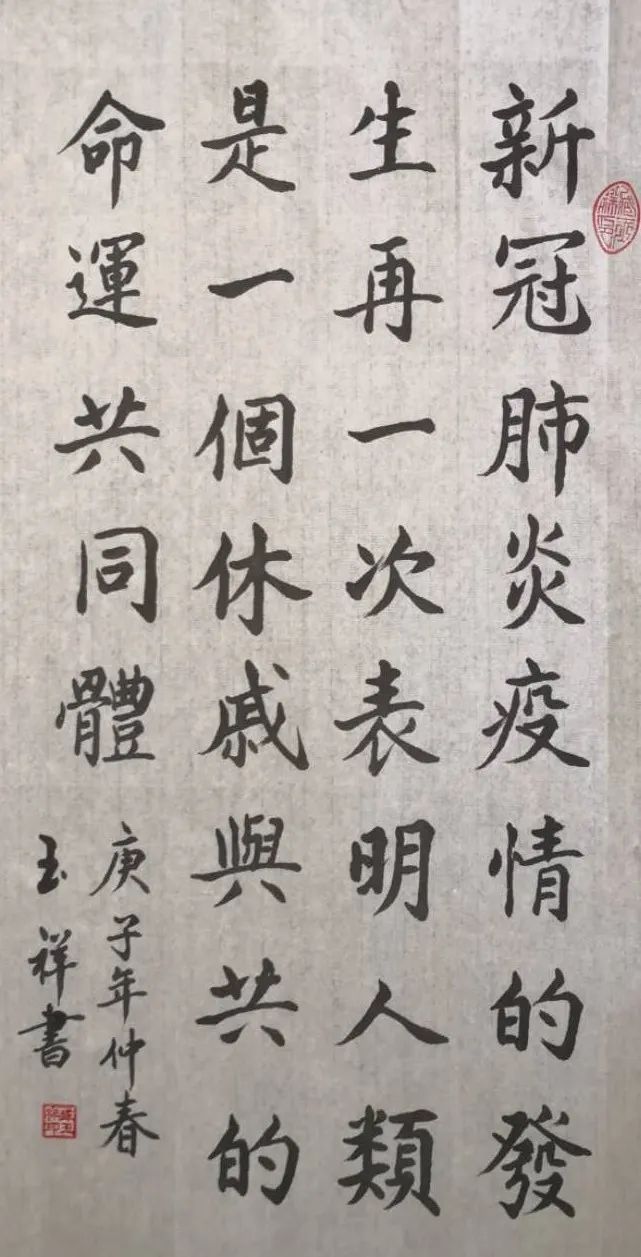 新冠肺炎疫情的發
生再一次表明人類
是一個休戚與共的
命運共同體
庚子年仲春
玉祥書